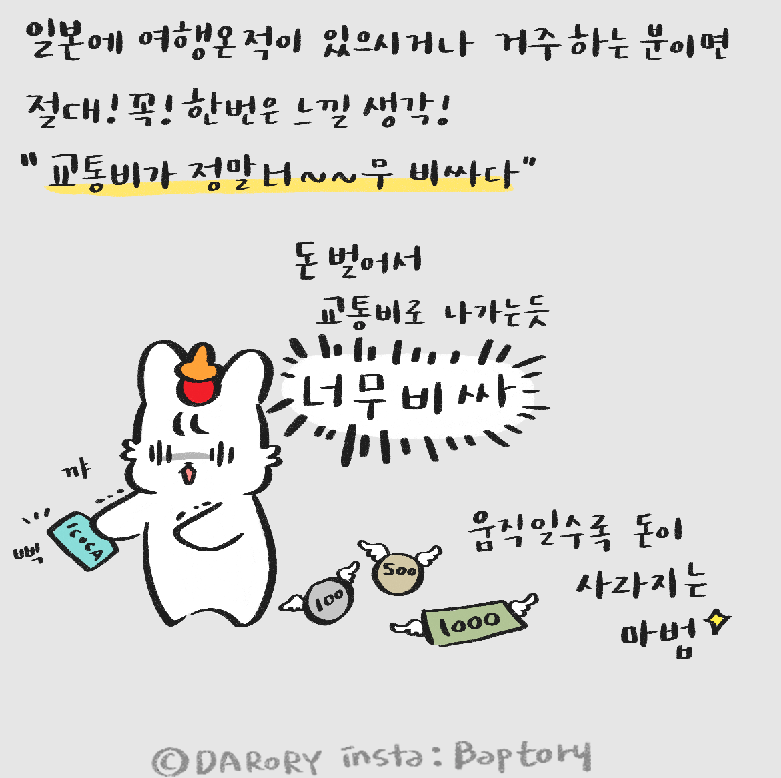 일본에 여행온적이 있으시거나 거주하는 분이면
절대! 꼭! 한번은 느낄 생각!
"교통비가 정말 너~~무 비싸다"
돈 벌어서
교통비로 나가는듯
너무 비싸
까
ICOCA
삑
100
500
1000
움직일수록 돈이
사라지는
마법
©DARORY insta: Baptory